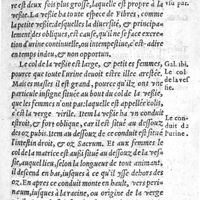 re est deux fois plus grosse, laquelle est propre à la
vessie. La vessie ha toute espece de Fibres, comme
la petite vessie: desquelles la diversité, & princi-
palement des obliques, est cause, qu'il ne se face excre-
tion d'urine continuelle, ou intempestiue, c'est-à dire
en temps indeu, & non opportun.
Le col de la vessie est large, & petit es femmes,
pource que toute l'urine devoit estre illec arrestée.
Mais es masles il est grand, pource qu'ilz ont vne
particule conjoincte exterieurement au col de vessie,
que les femmes n'ont pas, laquelle est appellée colis,
c'est la verge virile. Item la vessie ha vn conduit
estroit, & fort oblique, car il est situé au dessoubz du
oz pubis. Item au dessouz de ce conduit est situé
l'intestin droit, & oz Sacrum. Et aux femmes le
col de la matrice est aussi situé au dessouz de la ves-
sie, auquel lieu, selon la longueur de tout animant,
il descend en bas, iusques à ce qu'il ysse dehors des
oz. En apres ce conduit monte en haut, vers peri-
næum, iusques à la racine, ou origine de la verge
vſu par.
Gal. ibi.
Le col
de la ves
sie.
Le con-
duit de
l'urine.